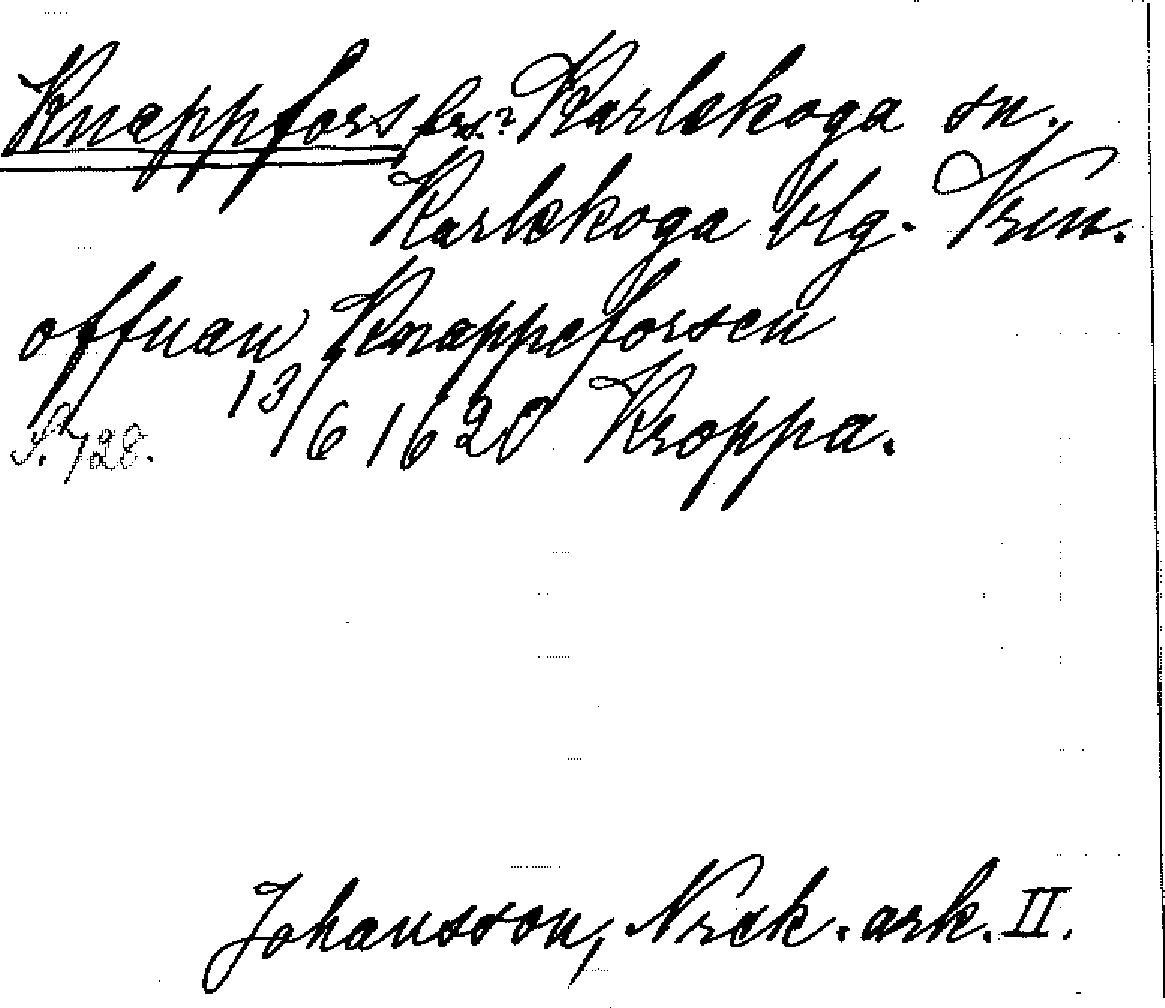 Knappfors fors? Karlskoga sn.
Karlskoga blg. Vrm.
offuan Knappeforsen
13/6 1620 Kroppa.
S. 728.
Johansson, Nrck. ark. II.